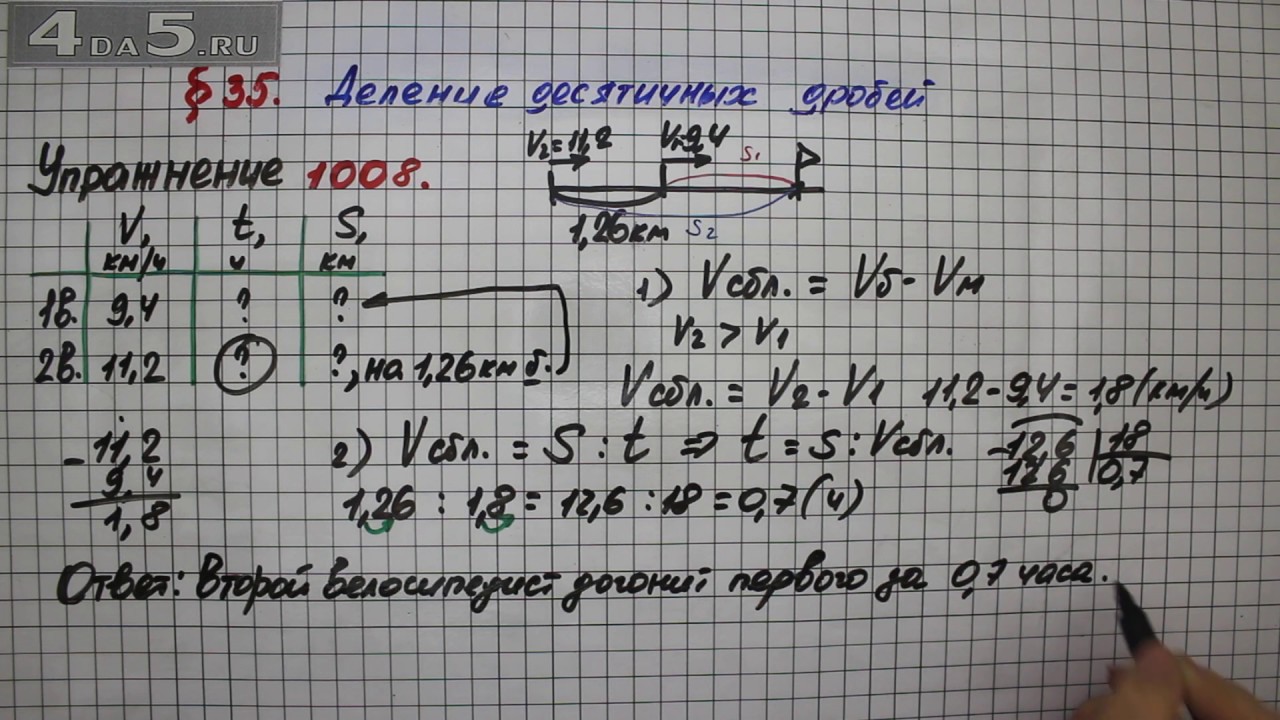 4DA5.RU
§ 35. Деление десятичных дробей
Упражнение 1008.
V₂=11,2 V₁=9,4 S₁
1,26км S₂
V, t, S,
км/ч ч км
1в. 9,4 ? ?
2в. 11,2 ? ?, на 1,26км б.
1) Vсбл. = Vб - Vм
V₂ > V₁
Vсбл. = V₂ - V₁ 11,2-9,4=1,8(км/ч)
-11,2
9,4
1,8
2) Vсбл. = S : t ⇒ t = S : Vсбл.
-12,6 18
12 6 0,7
0
1,26 : 1,8 = 12,6 : 18 = 0,7(ч)
Ответ: Второй велосипедист догонит первого за 0,7 часа.